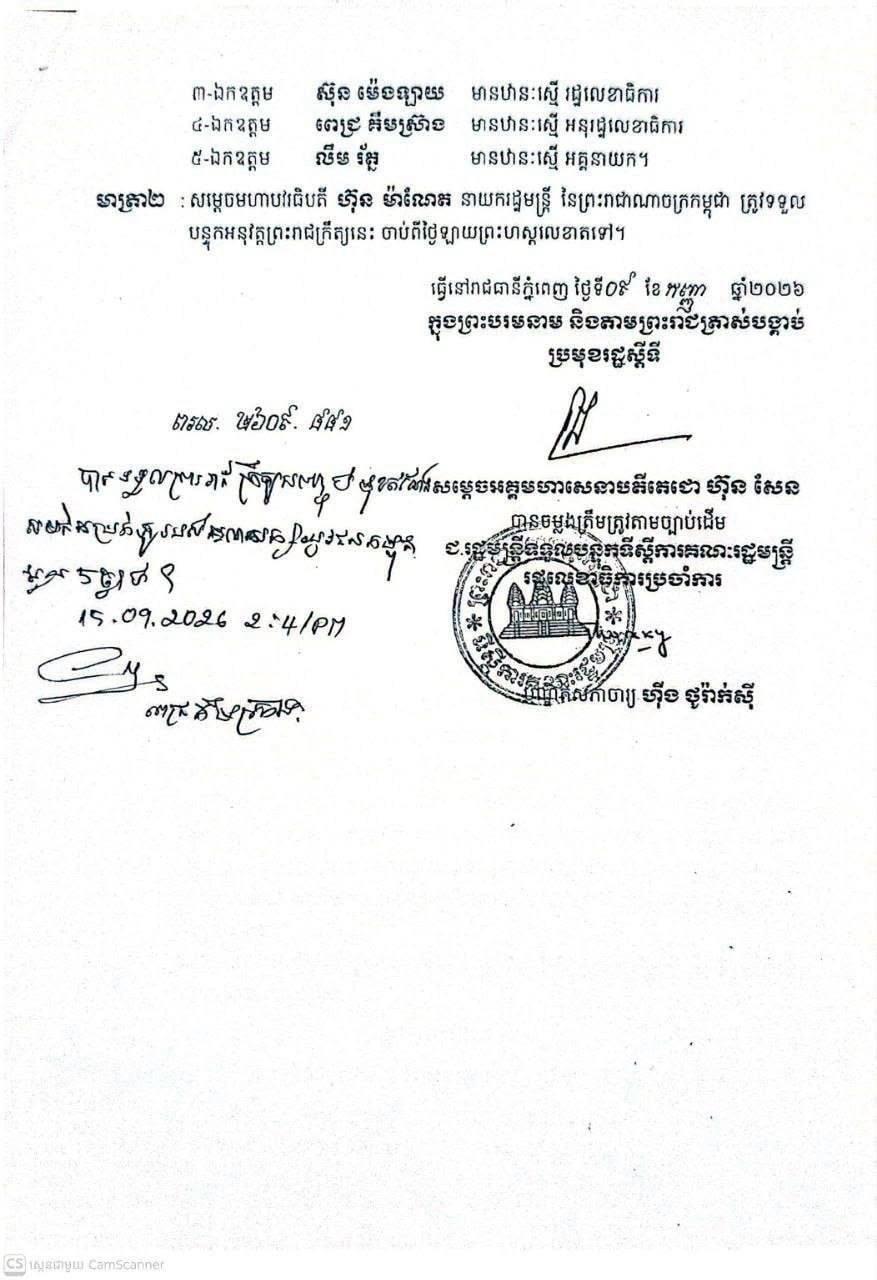 ៣-ឯកឧត្តម ស៊ុន ម៉េងឡាយ មានឋានៈស្មើ រដ្ឋលេខាធិការ
៤-ឯកឧត្តម ពេជ្រ គឹមស្រ៊ាង មានឋានៈស្មើ អនុរដ្ឋលេខាធិការ
៥-ឯកឧត្តម លឹម រ័ត្ន មានឋានៈស្មើ អគ្គនាយក។
មាត្រា២ : សម្តេចមហាបវរធិបតី ហ៊ុន ម៉ាណែត នាយករដ្ឋមន្ត្រី នៃព្រះរាជាណាចក្រកម្ពុជា ត្រូវទទួល
បន្ទុកអនុវត្តព្រះរាជក្រឹត្យនេះ ចាប់ពីថ្ងៃឡាយព្រះហស្តលេខាតទៅ។
ធ្វើនៅរាជធានីភ្នំពេញ ថ្ងៃទី០៩ ខែ កញ្ញា ឆ្នាំ២០២៦
ក្នុងព្រះបរមនាម និងតាមព្រះរាជត្រាស់បង្គាប់
ប្រមុខរដ្ឋស្តីទី
ពរល. ២៦០៩. ៨៨១
សម្តេចអគ្គមហាសេនាបតីតេជោ ហ៊ុន សែន
បានចម្លងត្រឹមត្រូវតាមច្បាប់ដើម
ជ.រដ្ឋមន្ត្រីទទួលបន្ទុកទីស្តីការគណៈរដ្ឋមន្ត្រី
រដ្ឋលេខាធិការប្រចាំការ
15.09.2026 2:41PM
បណ្ឌិតសភាចារ្យ ហ៊ីង ថូរ៉ាក់ស៊ី
CS ស្កេនជាមួយ CamScanner